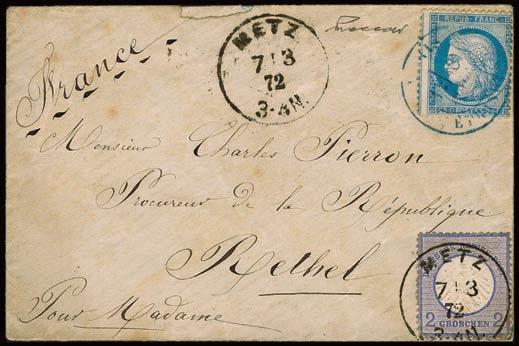 France
METZ
7 I 3
72
3-4N.
REPUB. FRANC.
Monsieur Charles Pierron
Procureur de la République
Rethel
Pour Madame
METZ
7 I 3
72
3-4N.
2 GROSCHEN 2